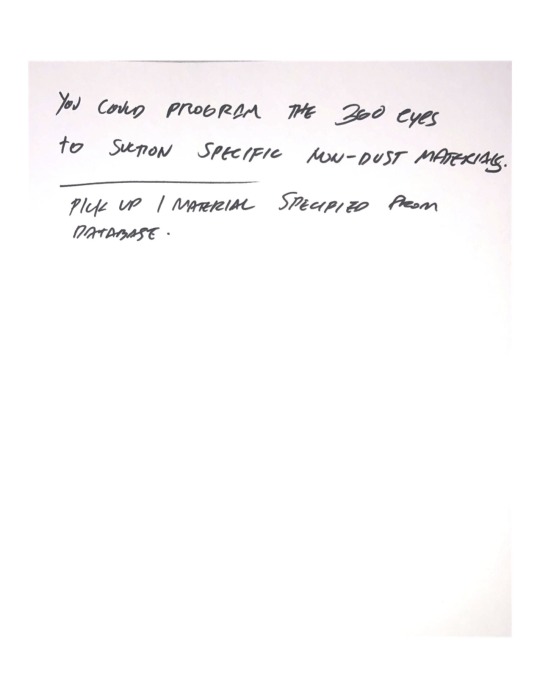 You COULD PROGRAM THE 360 eyes
to SUCTION SPECIFIC NON-DUST MATERIALS.
PICK UP 1 MATERIAL SPECIFIED FROM
DATABASE.